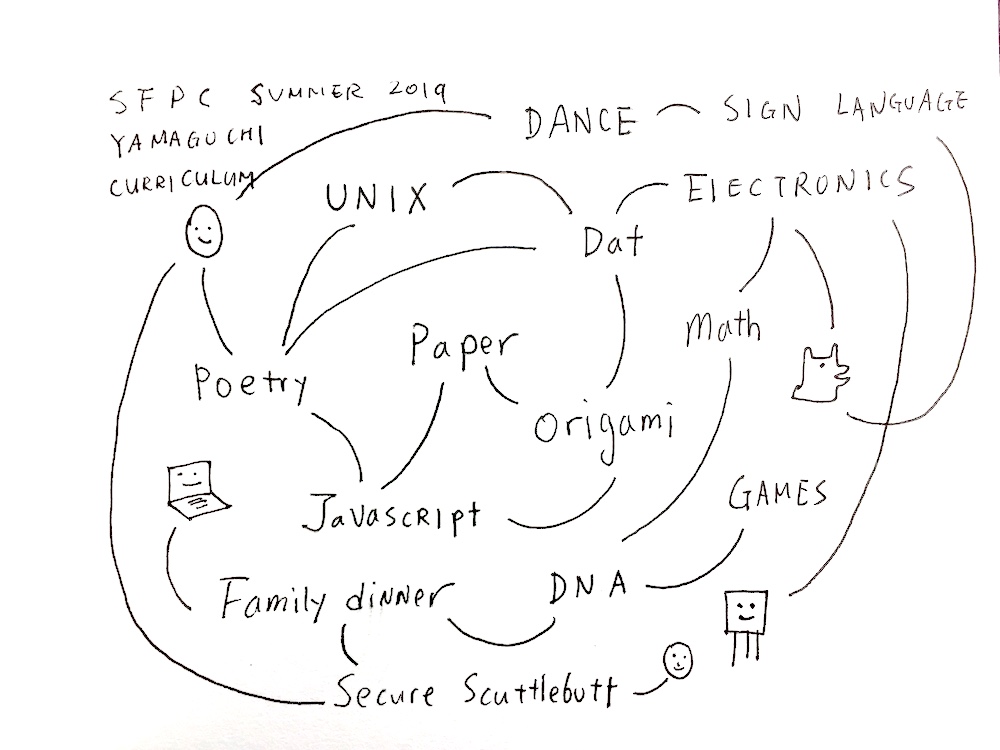 SFPC SUMMER 2019
YAMAGUCHI
CURRICULUM
DANCE
SIGN LANGUAGE
UNIX
ElECTRONICS
Dat
Math
Paper
Poetry
Origami
JavascRIpt
GAMES
Family dinner
DNA
Secure Scuttlebutt